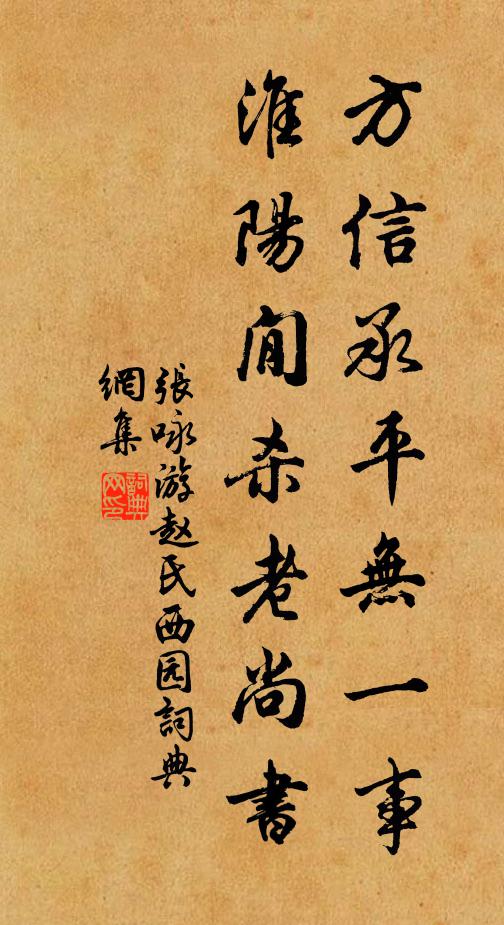 方信承平無一事
淮陽閒杀老尚書
張咏游赵氏西园詞典
網集
詞典网印